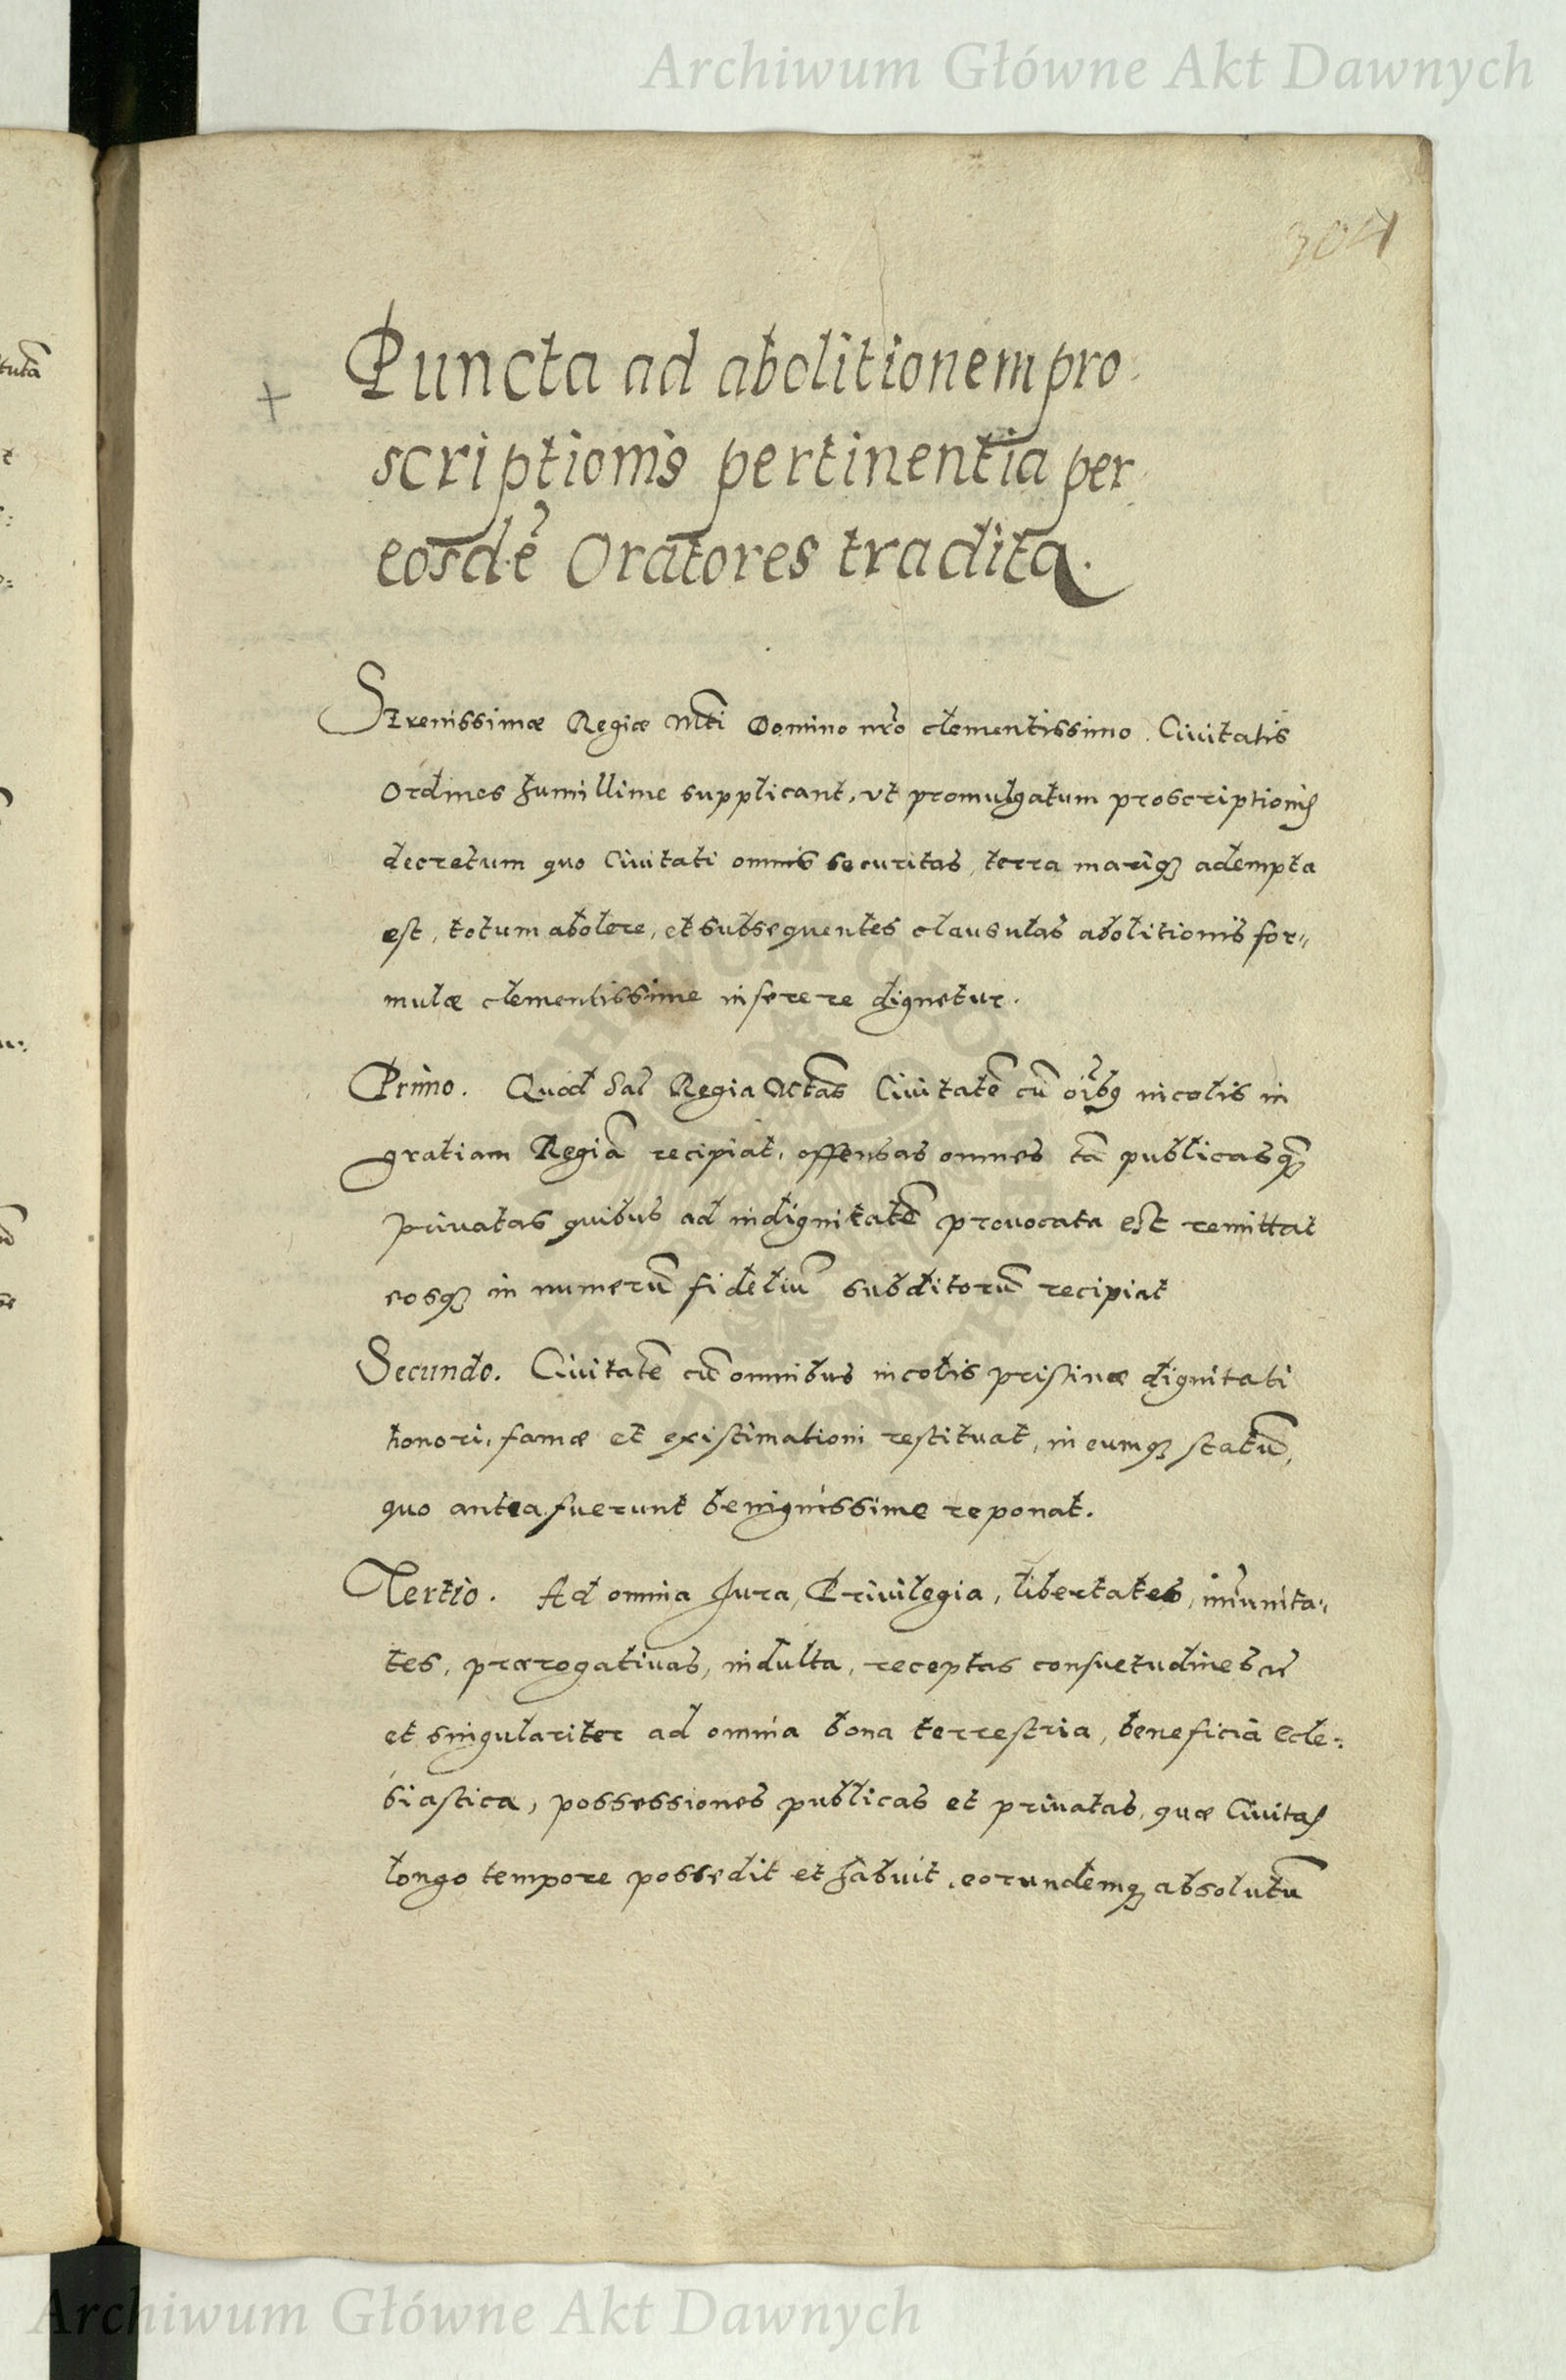 Archiwum Główne Akt Dawnych
304
Puncta ad abolitionem pro
scriptionis pertinentia per
eosdẽ Oratores tradita.
Serenissimæ Regiæ Mti Domino nrõ clementissimo Civitatis
Ordines humillime supplicant, vt promulgatum proscriptionis
decretum quo Civitati omnis securitas, terra mariq; adempta
est, totum abolere, et subsequentes clausulas abolitionis for„
mulæ clementissime inserere dignetur.
Primo. Quod Sac Regia Mtas Civitatẽ cũ oĩbq incolis in
gratiam Regiã recipiat, offensas omnes tã publicas q̃
privatas quibus ad indignitatẽ provocata est remittat
eosq; in numerũ fideliũ subditorũ recipiat
Secundo. Civitatẽ cũ omnibus incolis pristinæ dignitati
honori, famæ et existimationi restituat, in eumq; statũ,
quo antea fuerunt benignissime reponat.
Tertio. Ad omnia Jura, Privilegia, libertates, im̃unita„
tes, prærogativas, indulta, receptas consuetudines ac
et singulariter ad omnia bona terrestria, beneficia Ecle„
siastica, possessiones publicas et privatas, quæ Civitas
longo tempore possedit et habuit, eorundemq; absolutũ
Archiwum Główne Akt Dawnych